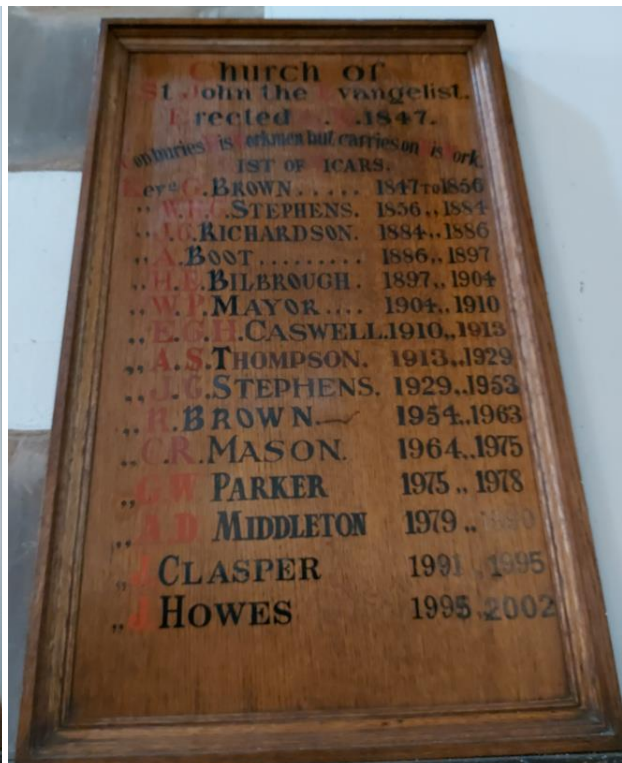 Church of
St John the Evangelist.
Erected A.D.1847.
God buries His Workmen but carries on His Work.
LIST OF VICARS.
Revd C. BROWN..... 1847 TO 1856
„ W.F.G. STEPHENS. 1856 „ 1884
„ J.G. RICHARDSON. 1884 „ 1886
„ A. BOOT......... 1886 „ 1897
„ H.E. BILBROUGH. 1897 „ 1904
„ W.P. MAYOR.... 1904 „ 1910
„ E.G.H. CASWELL. 1910 „ 1913
„ A.S. THOMPSON. 1913 „ 1929
„ J.G. STEPHENS. 1929 „ 1953
„ R. BROWN 1954 „ 1963
„ C.R. MASON. 1964 „ 1975
„ G W PARKER 1975 „ 1978
„ A D MIDDLETON 1979 „ 1990
„ J CLASPER 1991 „ 1995
„ J HOWES 1995 „ 2002